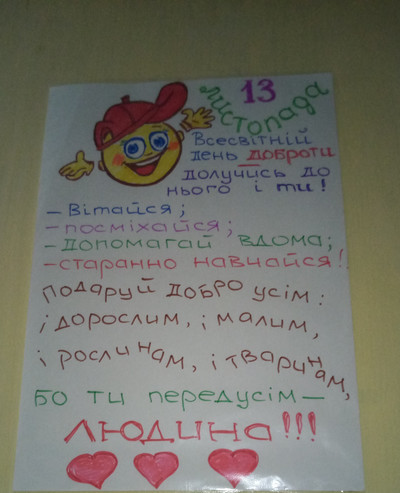 13
листопада
Всесвітній
день доброти
долучись до
нього і ти!
– Вітайся;
– посміхайся;
– допомагай вдома;
– старанно навчайся!
Подаруй добро усім:
і дорослим, і малим,
і рослинам, і тваринам,
Бо ти передусім –
ЛЮДИНА!!!